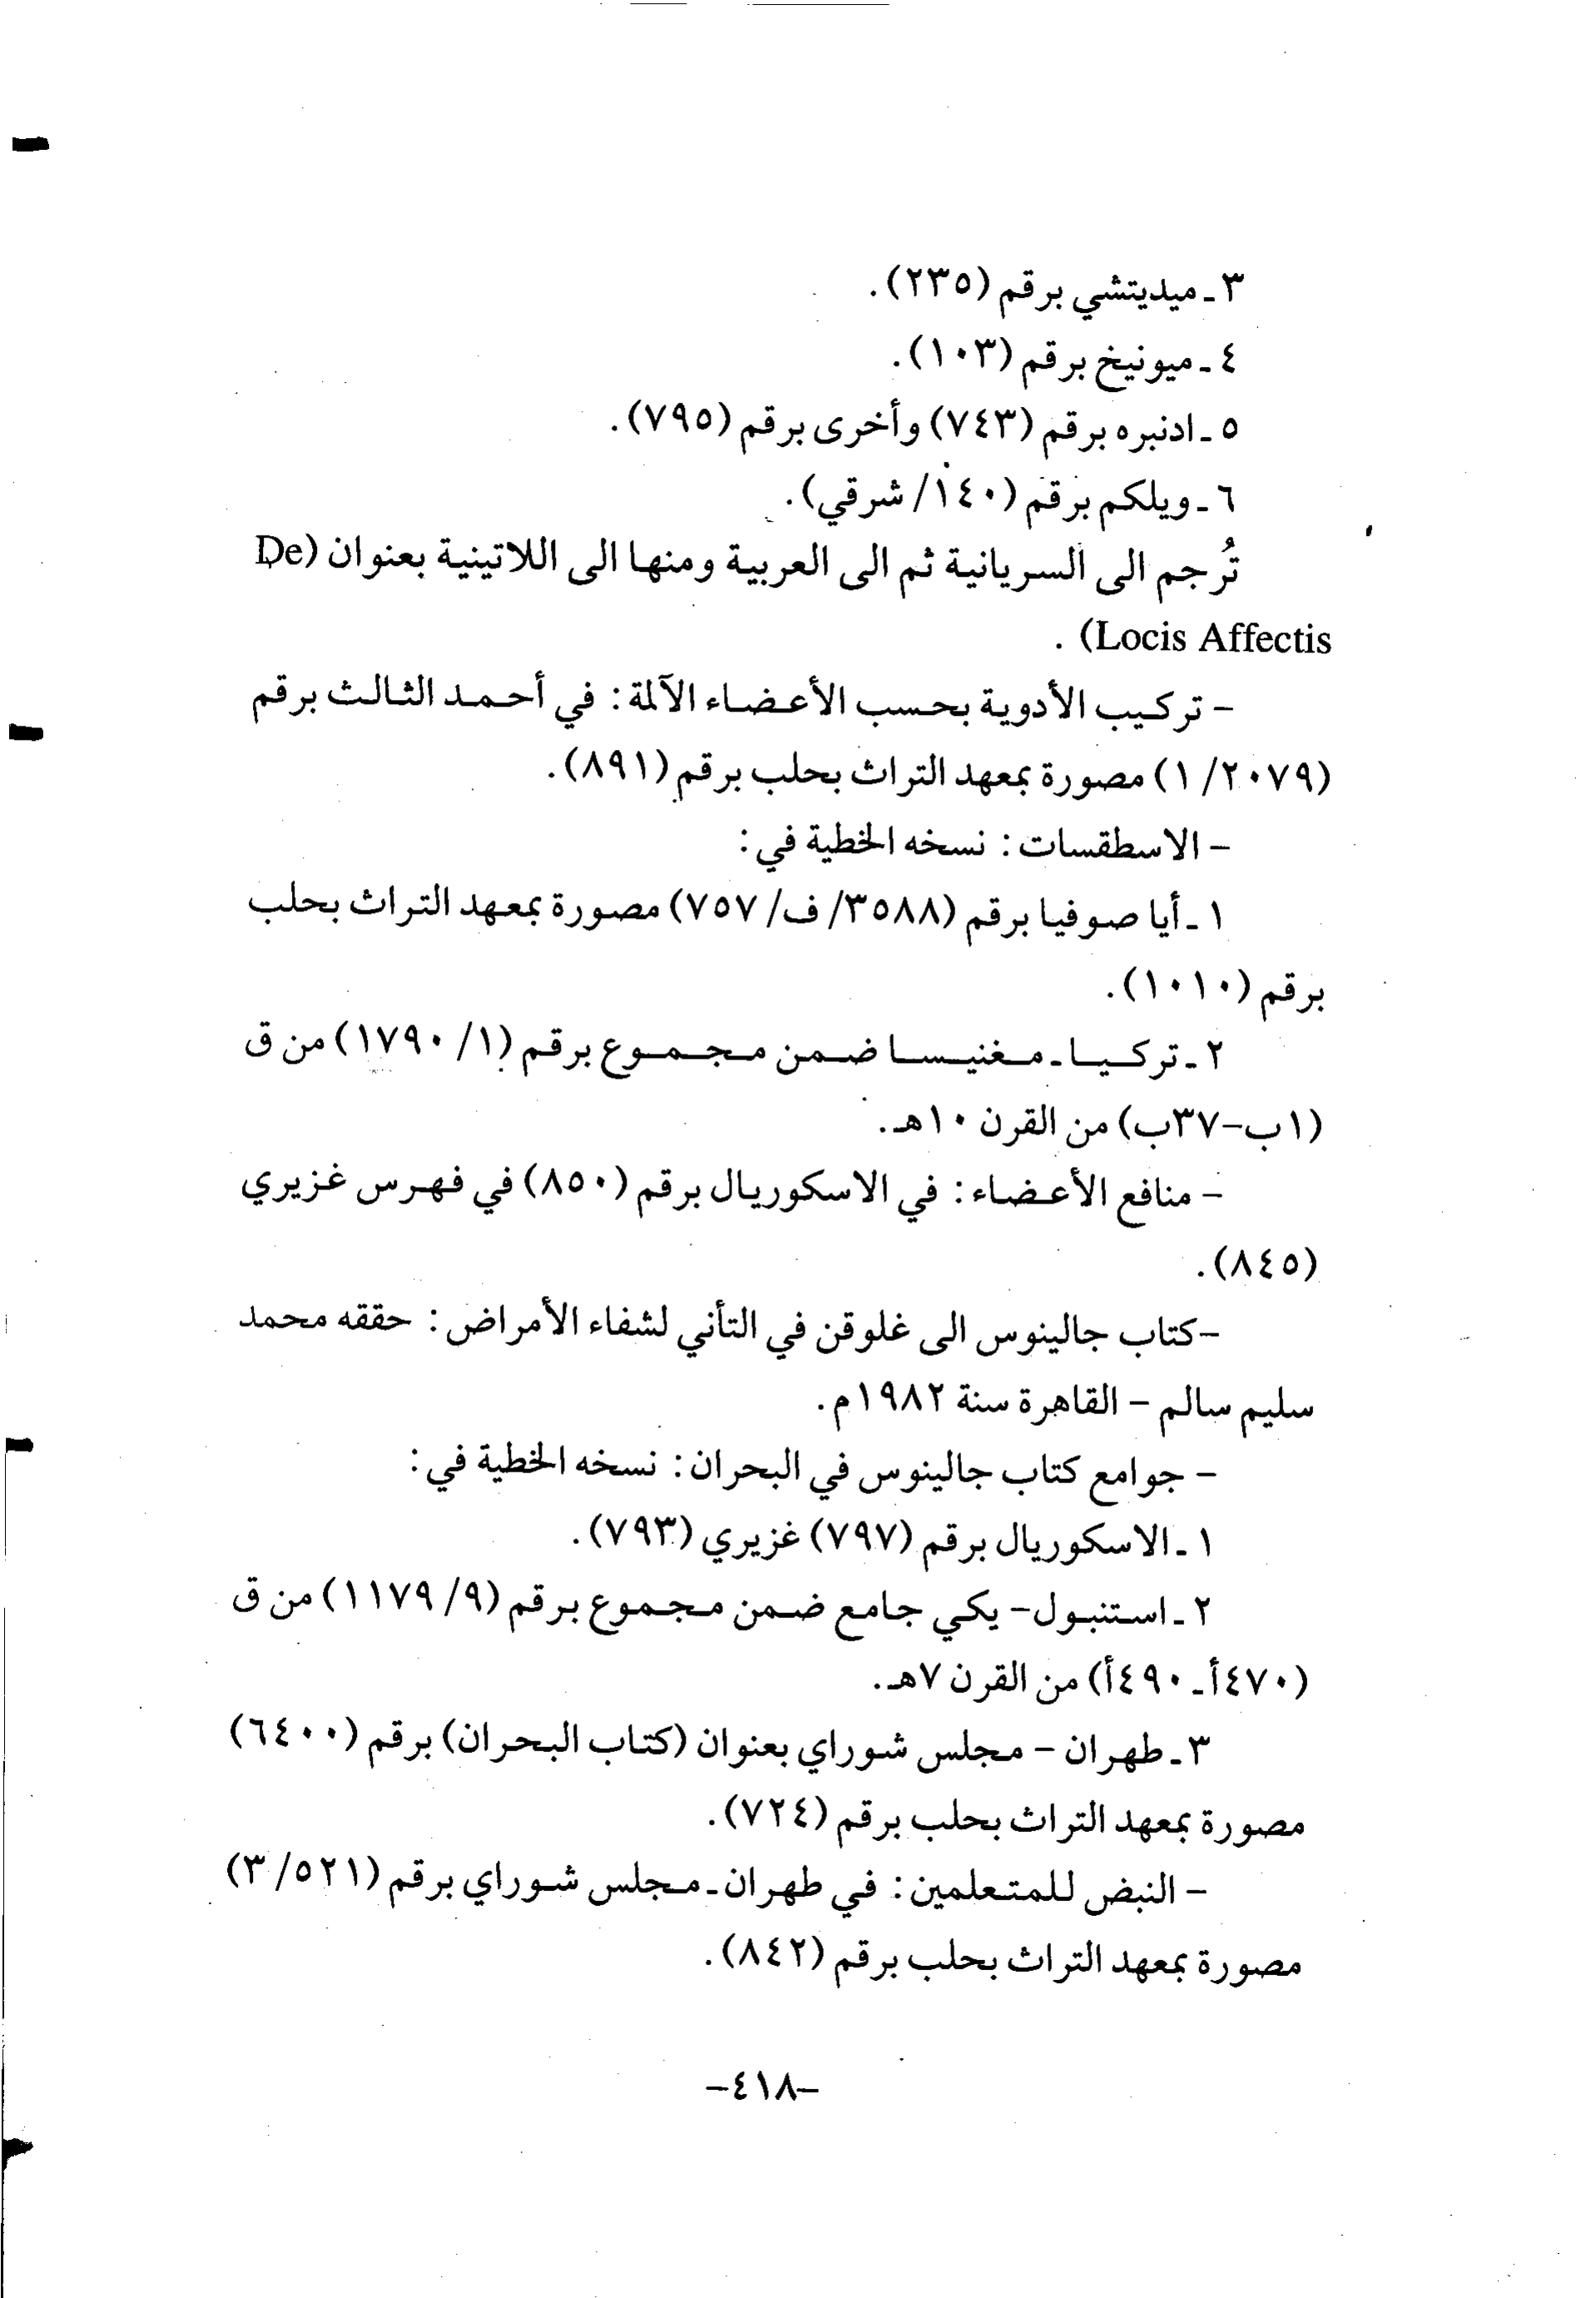 ٣ ـ ميديتشي برقم (٢٣٥).
٤ ـ ميونيخ برقم (١٠٣).
٥ ـ ادنبره برقم (٧٤٣) وأخرى برقم (٧٩٥).
٦ ـ ويلكم برقم (١٤٠/ شرقي).
تُرجم الى السريانية ثم الى العربية ومنها الى اللاتينية بعنوان (De
Locis Affectis) .
– تركيب الأدوية بحسب الأعضاء الآلمة: في أحمد الثالث برقم
(٢٠٧٩/ ١) مصورة بمعهد التراث بحلب برقم (٨٩١).
– الاسطقسات: نسخه الخطية في:
١ ـ أيا صوفيا برقم (٣٥٨٨/ ف/ ٧٥٧) مصورة بمعهد التراث بحلب
برقم (١٠١٠).
٢ ـ تركيا ـ مغنيسا ضمن مجموع برقم (١/ ١٧٩٠) من ق
(١ب–٣٧ب) من القرن ١٠هـ.
– منافع الأعضاء: في الاسكوريال برقم (٨٥٠) في فهرس غزيري
(٨٤٥).
–كتاب جالينوس الى غلوقن في التأني لشفاء الأمراض: حققه محمد
سليم سالم – القاهرة سنة ١٩٨٢م.
– جوامع كتاب جالينوس في البحران: نسخه الخطية في:
١ ـ الاسكوريال برقم (٧٩٧) غزيري (٧٩٣).
٢ ـ استنبول– يكي جامع ضمن مجموع برقم (٩/ ١١٧٩) من ق
(٤٧٠أ ـ ٤٩٠أ) من القرن ٧هـ.
٣ ـ طهران – مجلس شوراي بعنوان (كتاب البحران) برقم (٦٤٠٠)
مصورة بمعهد التراث بحلب برقم (٧٢٤).
– النبض للمتعلمين: في طهران ـ مجلس شوراي برقم (٥٢١/ ٣)
مصورة بمعهد التراث بحلب برقم (٨٤٢).
–٤١٨–